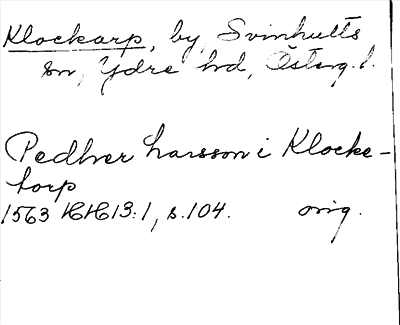 Klockarp, by, Svinhults
sn, Ydre hd, Österg. l.
Pedher Larsson i Klocke-
torp
1563 HH 13:1, s. 104. orig.